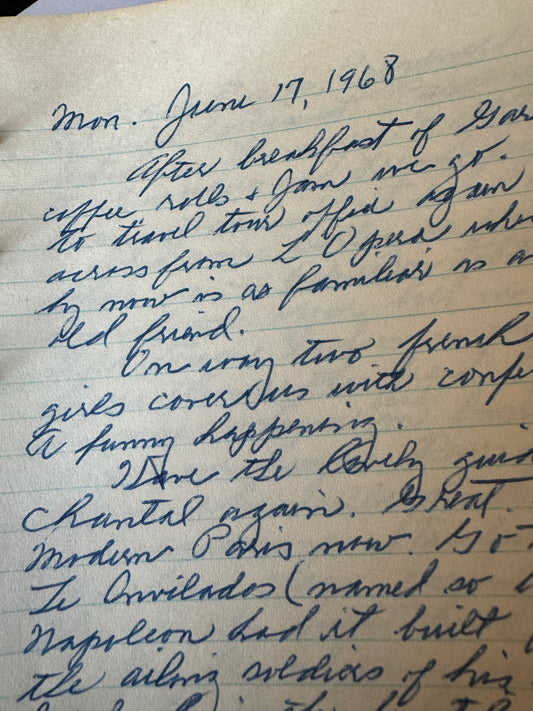 Mon. June 17, 1968
After breakfast of
coffee, rolls + Jam we go.
to travel tour office again
across from L'Opera
by now is as familiar as a
old friend.
On way two french
girls covered us with
A funny happening.
Have the lovely
Chantal again. Great.
Modern Paris now. Go
Le Onvilados (named so
Napoleon had it built
the ailing soldiers of his